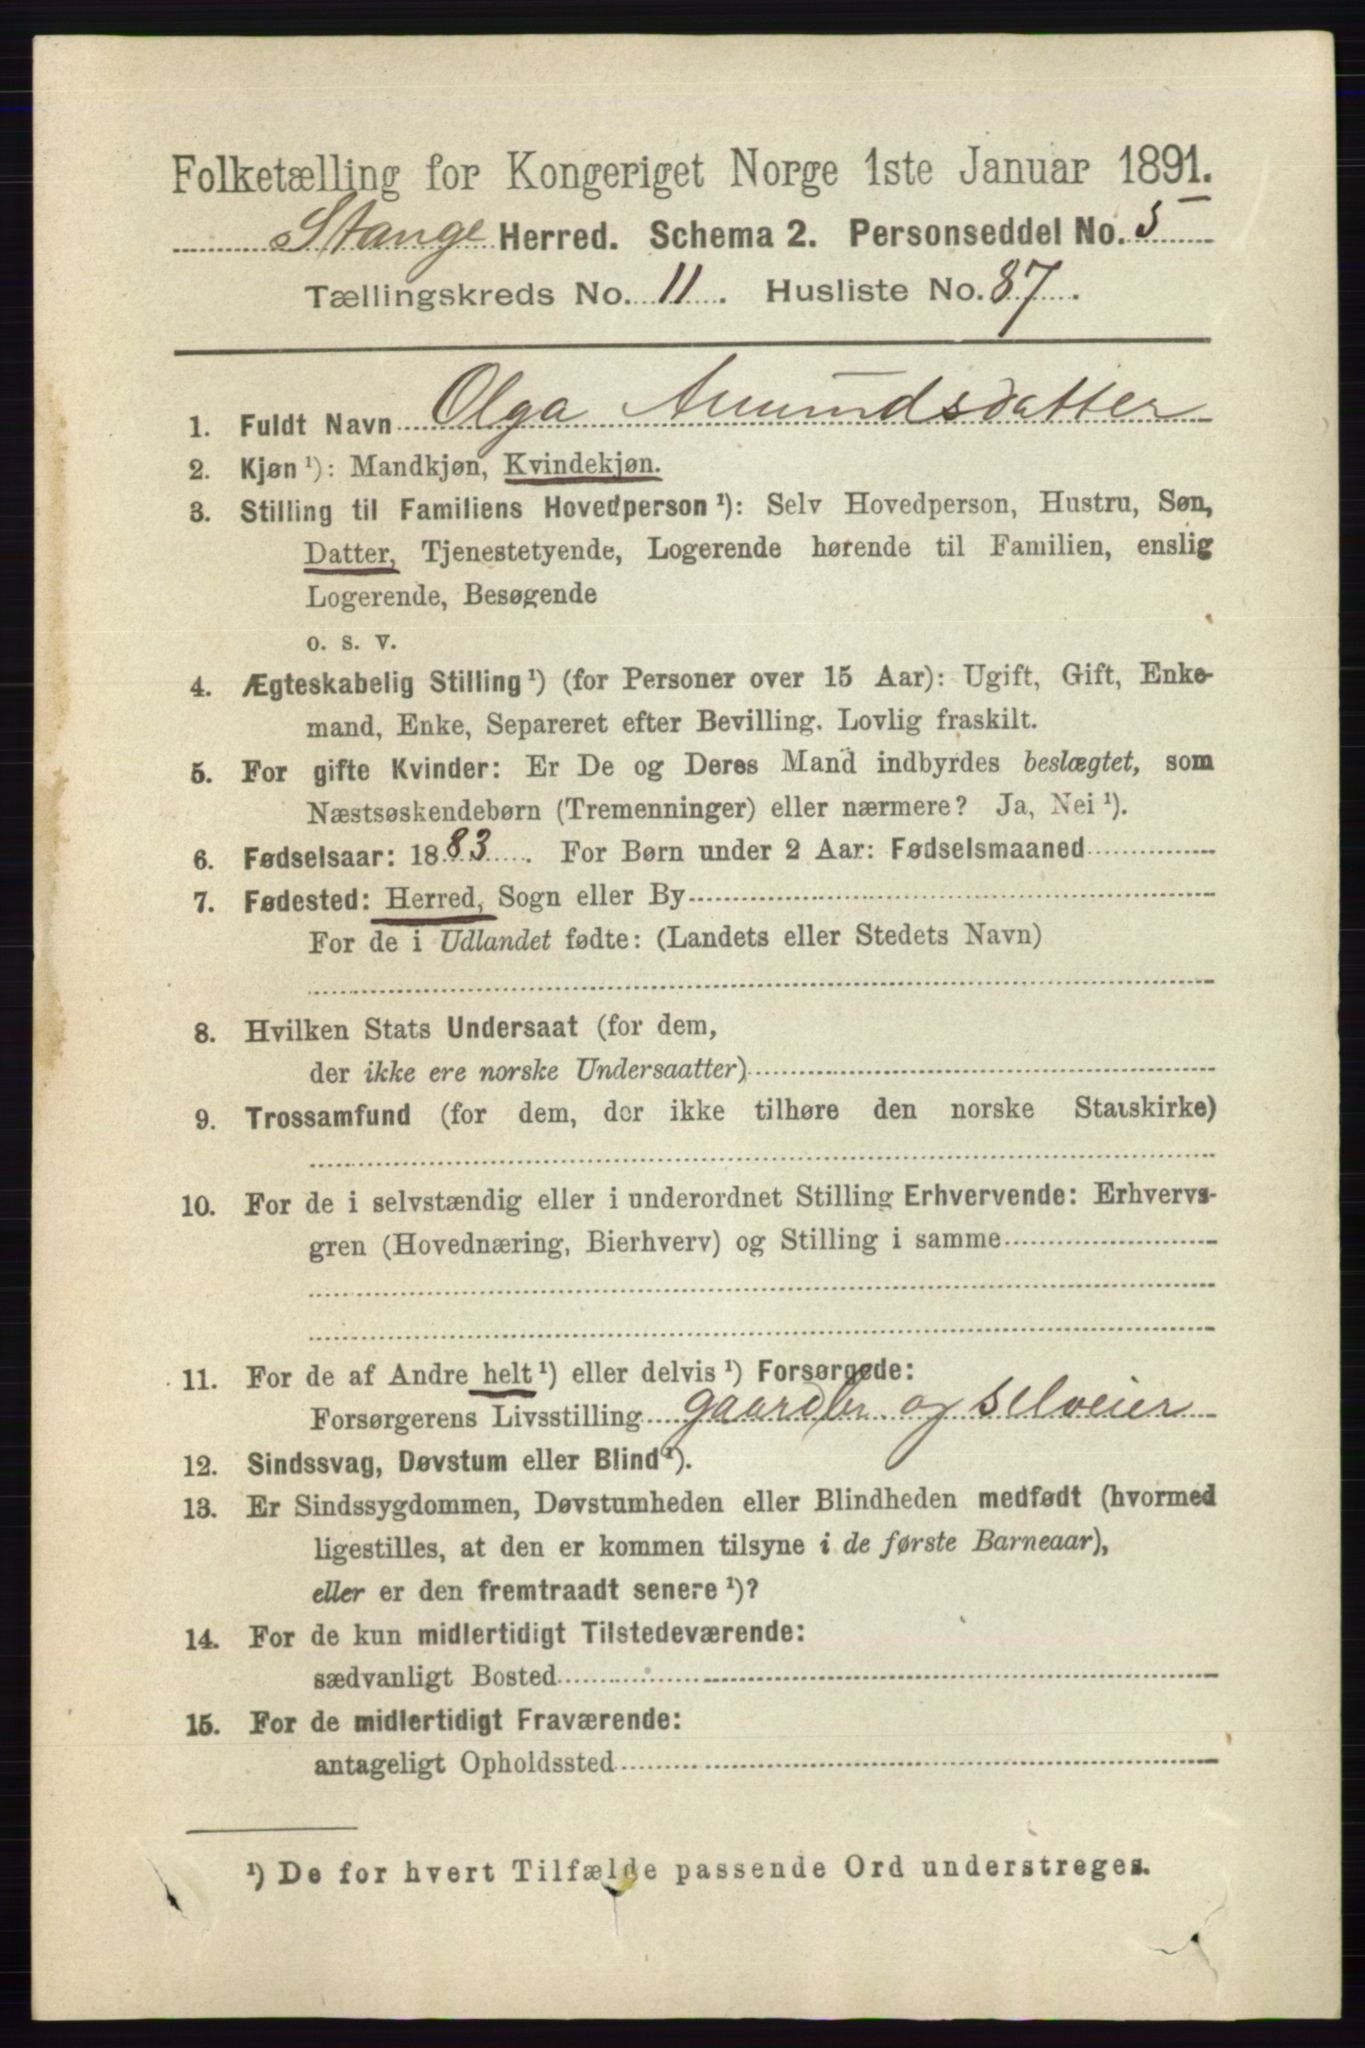 Folketælling for Kongeriget Norge 1ste Januar 1891.
Stange Herred. Schema 2. Personseddel No. 5
Tællingskreds No. 11. Husliste No. 87.
1. Fuldt Navn Olga Amundsdatter
2. Kjøn ¹): Mandkjøn, Kvindekjøn.
3. Stilling til Familiens Hovedperson ¹): Selv Hovedperson, Hustru, Søn,
Datter, Tjenestetyende, Logerende hørende til Familien, enslig
Logerende, Besøgende
o. s. v.
4. Ægteskabelig Stilling ¹) (for Personer over 15 Aar): Ugift, Gift, Enke-
mand, Enke, Separeret efter Bevilling. Lovlig fraskilt.
5. For gifte Kvinder: Er De og Deres Mand indbyrdes beslægtet, som
Næstsøskendebørn (Tremenninger) eller nærmere? Ja, Nei ¹).
6. Fødselsaar: 1883. For Børn under 2 Aar: Fødselsmaaned
7. Fødested: Herred, Sogn eller By
For de i Udlandet fødte: (Landets eller Stedets Navn)
8. Hvilken Stats Undersaat (for dem,
der ikke ere norske Undersaatter)
9. Trossamfund (for dem, der ikke tilhøre den norske Statskirke)
10. For de i selvstændig eller i underordnet Stilling Erhvervende: Erhvervs-
gren (Hovednæring, Bierhverv) og Stilling i samme
11. For de af Andre helt ¹) eller delvis ¹) Forsørgede:
Forsørgerens Livsstilling gaardbr. og selveier
12. Sindssvag, Døvstum eller Blind ¹).
13. Er Sindssygdommen, Døvstumheden eller Blindheden medfødt (hvormed
ligestilles, at den er kommen tilsyne i de første Barneaar),
eller er den fremtraadt senere ¹)?
14. For de kun midlertidigt Tilstedeværende:
sædvanligt Bosted
15. For de midlertidigt Fraværende:
antageligt Opholdssted
¹) De for hvert Tilfælde passende Ord understreges.